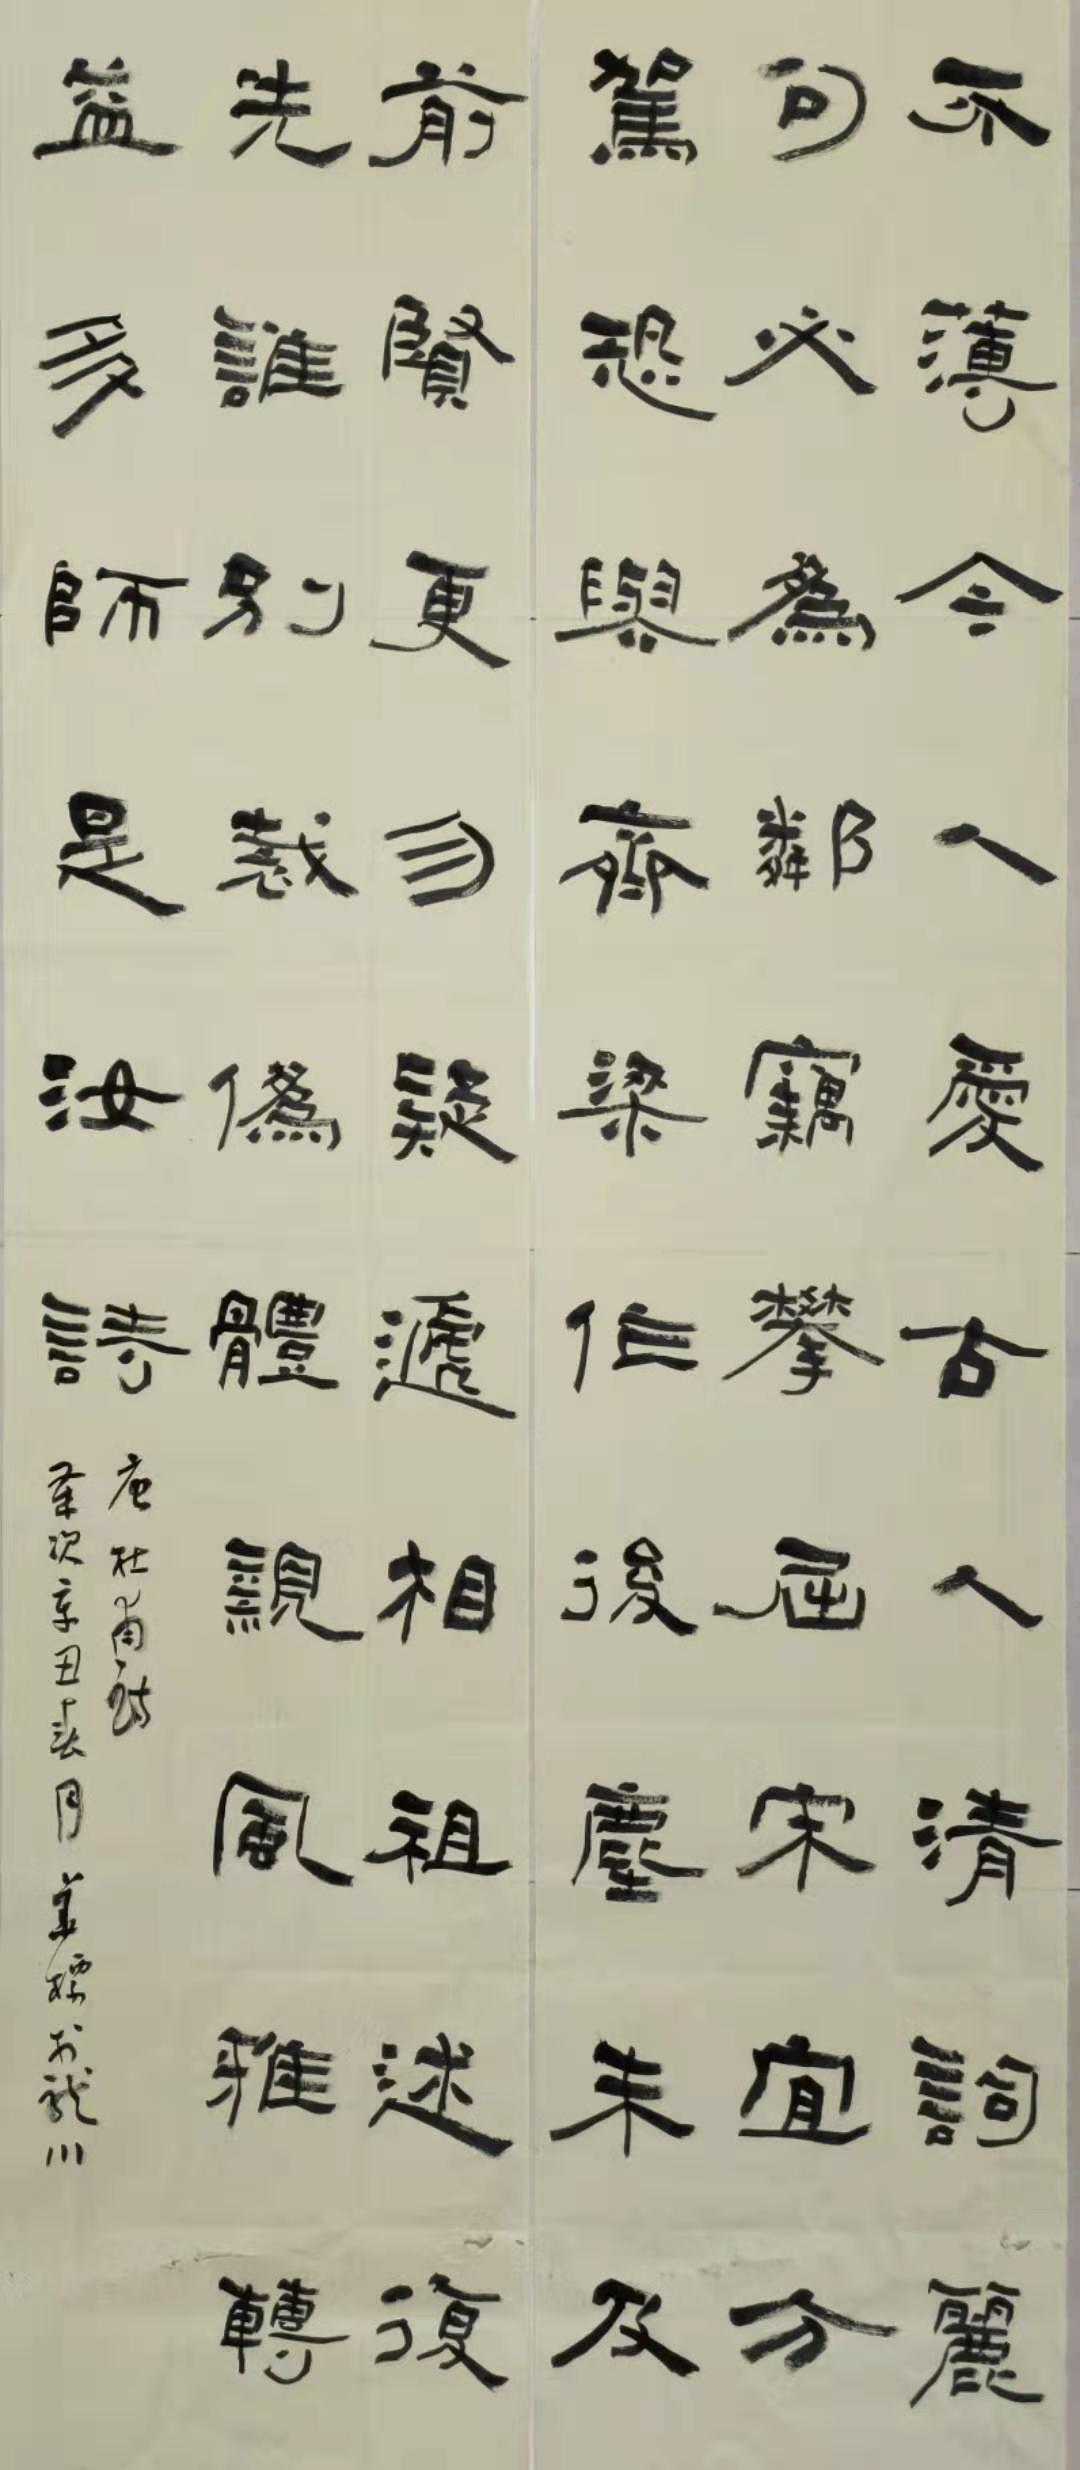 不薄今人愛古人清詞麗
句必爲鄰竊攀屈宋宜方
駕恐與齊梁作後塵未及
前賢更勿疑遞相祖述復
先誰別裁僞體親風雅轉
益多師是汝詩
唐杜甫詩
歲次辛丑春月標於龍川